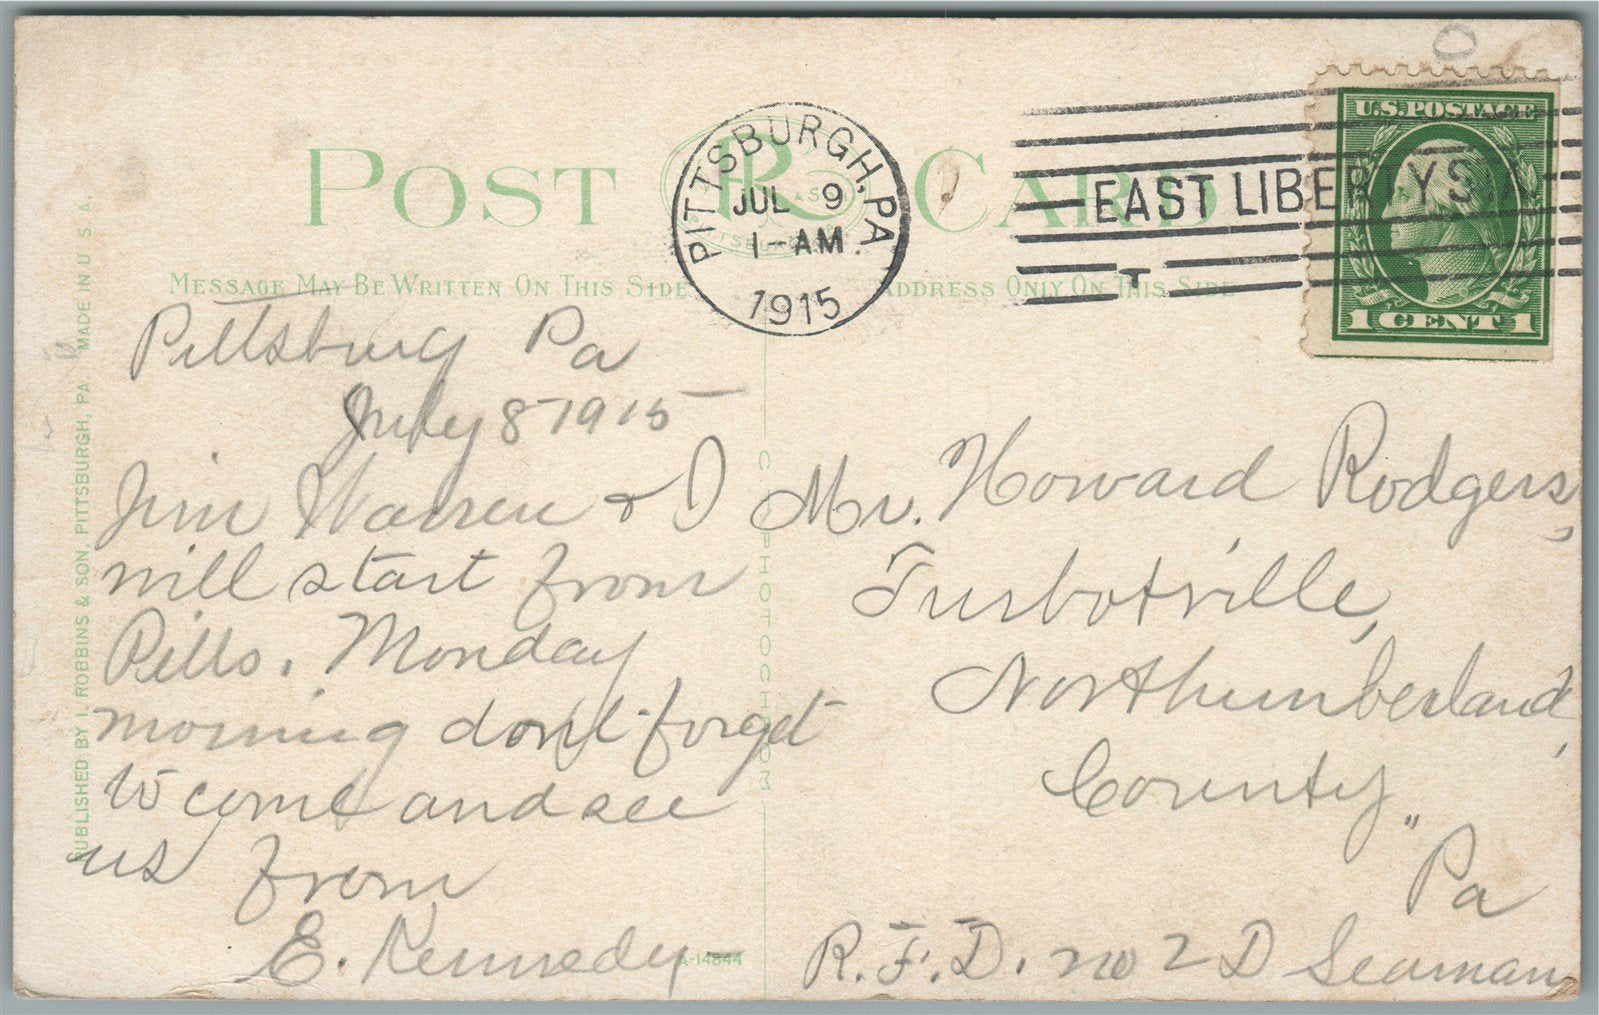 POST CARD
MESSAGE MAY BE WRITTEN ON THIS SIDE
ADDRESS ONLY ON THIS SIDE
PITTSBURGH, PA.
JUL 9
1-AM
1915
EAST LIBERTY STA
T
U.S. POSTAGE
1 CENT 1
Pittsburg Pa
July 8-1915
Jim Warren & I
will start from
Pitts. Monday
morning dont forget
to come and see
us from
E. Kennedy
Mr. Howard Rodgers,
Turbotville,
Northumberland,
County,,
Pa
R.F.D. no 2 D Seaman
PUBLISHED BY I. ROBBINS & SON, PITTSBURGH, PA. MADE IN U S A.
C.T. PHOTOCHROM
A-14844